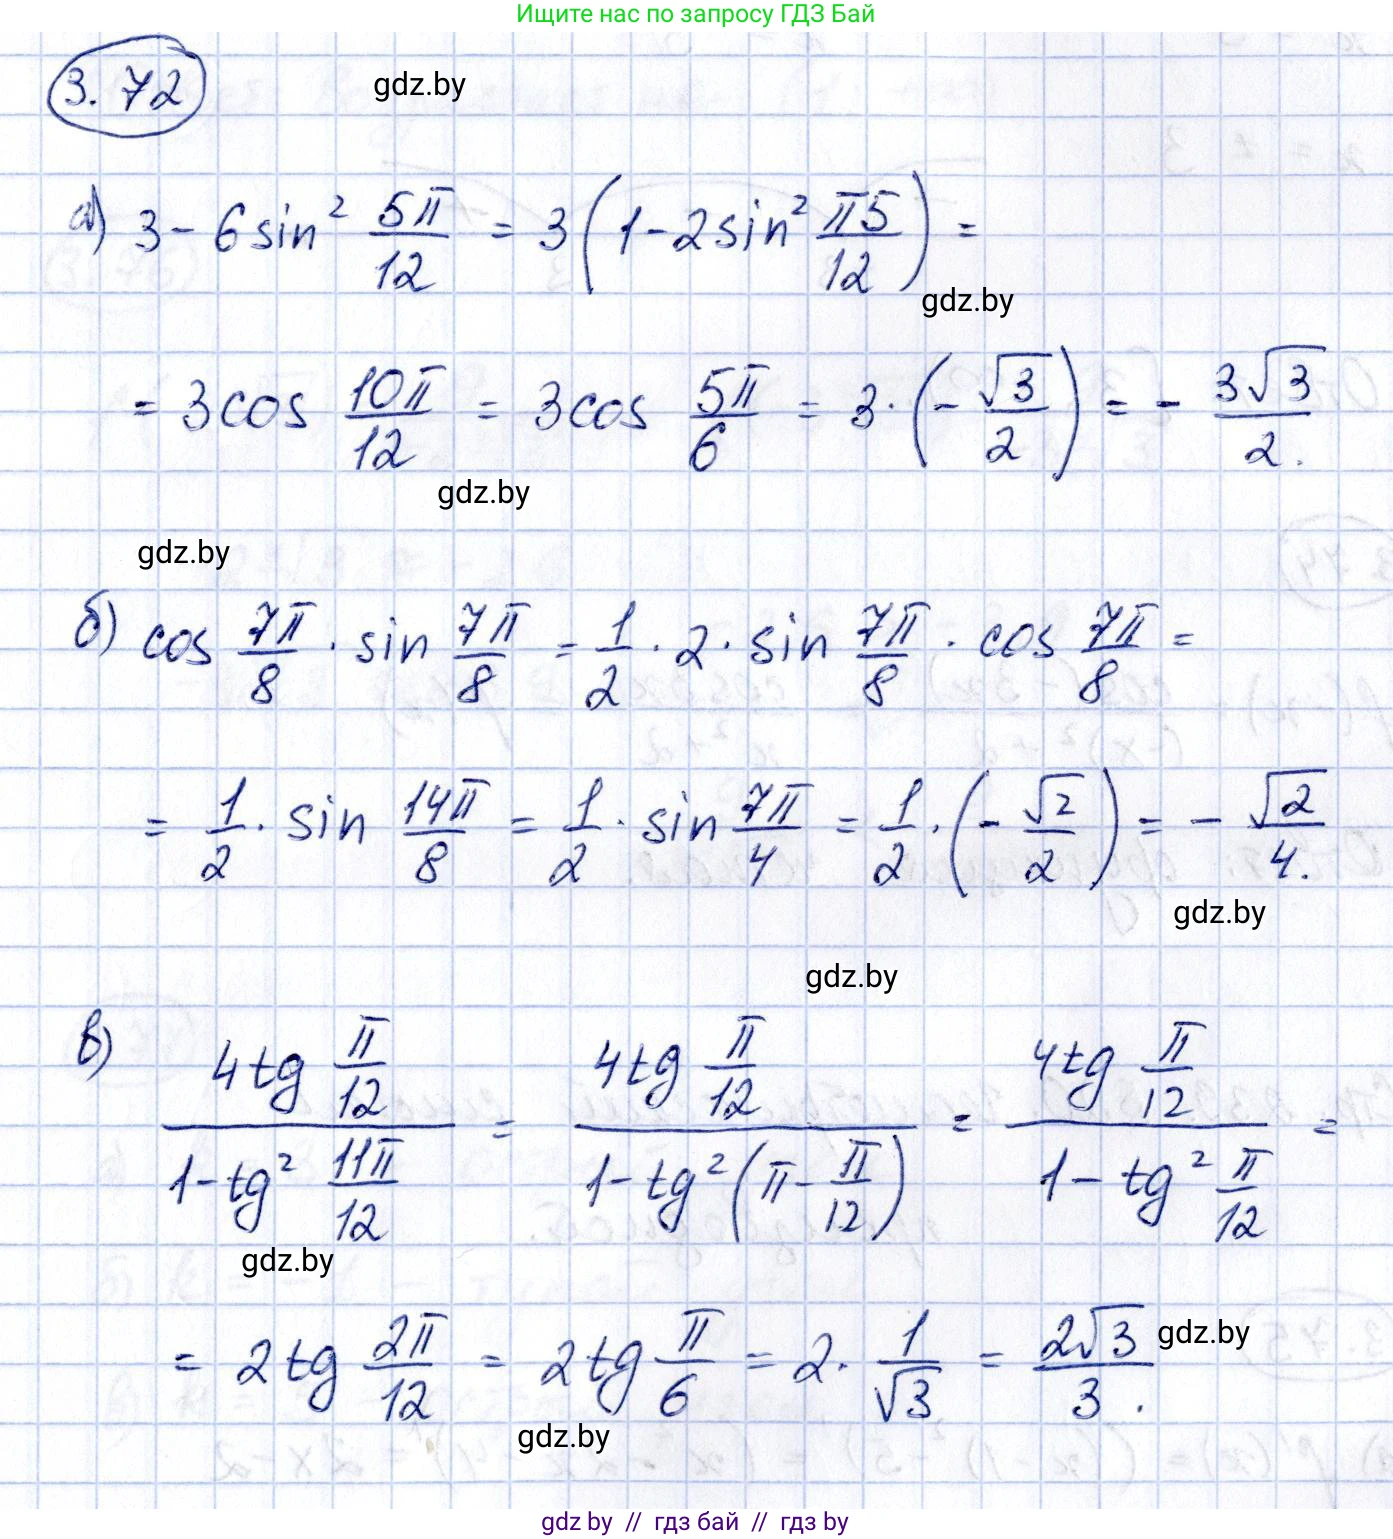 Ищите нас по запросу ГДЗ Бай
3.72
gdz.by
а) 3 - 6 sin² 5π/12 = 3(1 - 2 sin² π5/12) =
gdz.by
= 3 cos 10π/12 = 3 cos 5π/6 = 3 · (- √3/2) = - 3√3/2.
gdz.by
gdz.by
б) cos 7π/8 · sin 7π/8 = 1/2 · 2 · sin 7π/8 · cos 7π/8 =
= 1/2 · sin 14π/8 = 1/2 · sin 7π/4 = 1/2 · (- √2/2) = - √2/4.
gdz.by
gdz.by
в) (4 tg π/12)/(1 - tg² 11π/12) = (4 tg π/12)/(1 - tg² (π - π/12)) = (4 tg π/12)/(1 - tg² π/12) =
gdz.by
= 2 tg 2π/12 = 2 tg π/6 = 2 · 1/√3 = 2√3/3.
gdz.by
gdz.by
gdz by // гдз бай // гдз by